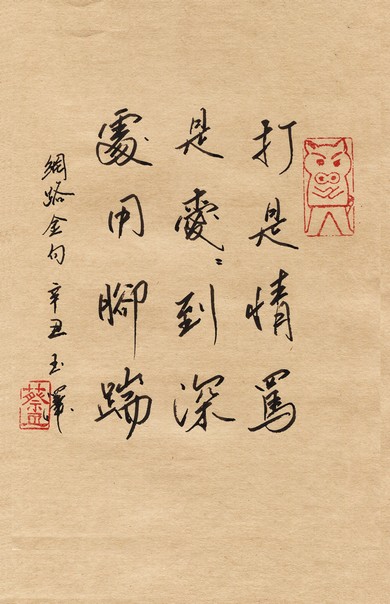 打是情罵
是愛〻到深
處用腳踹
網路金句 辛丑 玉
蔡